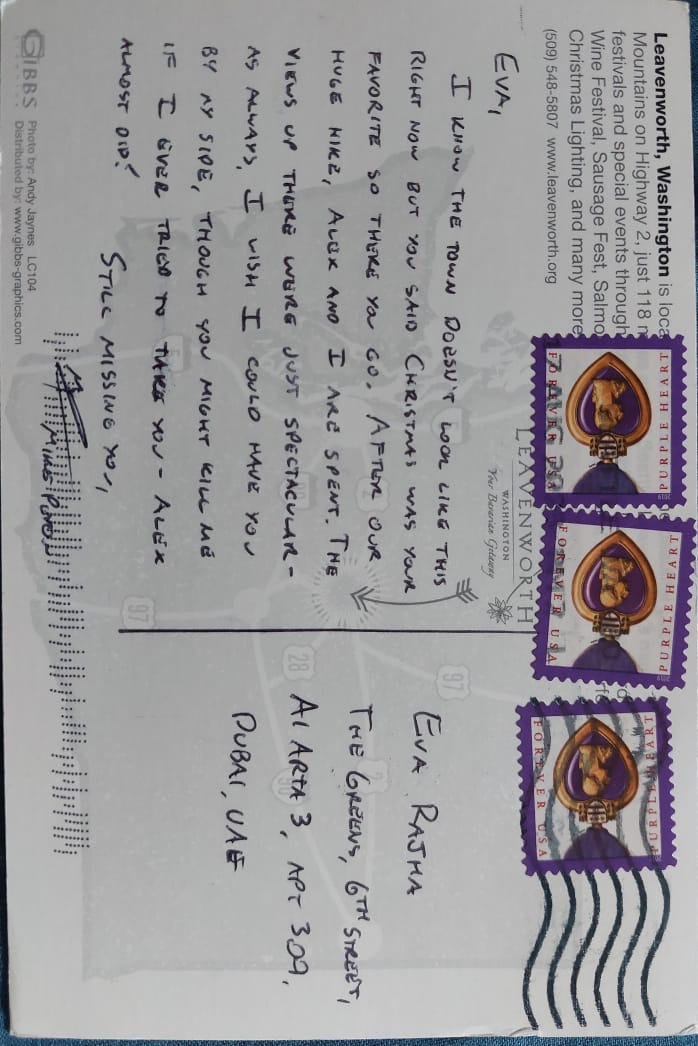 Leavenworth, Washington is loca
Mountains on Highway 2, just 118 m
festivals and special events through
Wine Festival, Sausage Fest, Salmo
Christmas Lighting, and many more
(509) 548-5807 www.leavenworth.org
PURPLE HEART
FOREVER USA
PURPLE HEART
FOREVER USA
PURPLE HEART
FOREVER USA
LEAVENWORTH
WASHINGTON
Your Bavarian Getaway
EVA,
I KNOW THE TOWN DOESN'T LOOK LIKE THIS
RIGHT NOW BUT YOU SAID CHRISTMAS WAS YOUR
FAVORITE SO THERE YOU GO. AFTER OUR
HUGE HIKE, ALEX AND I ARE SPENT. THE
VIEWS UP THERE WERE JUST SPECTACULAR-
AS ALWAYS, I WISH I COULD HAVE YOU
BY MY SIDE, THOUGH YOU MIGHT KILL ME
IF I EVER TRIED TO TAKE YOU - ALEX
ALMOST DID!
STILL MISSING YOU,
MIKE
EVA RAJHA
THE GREENS, 6TH STREET,
Al ARTA 3, APT 309,
DUBAI, UAE
97
2
2
28
90
5
97
GIBBS
GRAPHICS
Photo by: Andy Jaynes LC104
Distributed by: www.gibbs-graphics.com